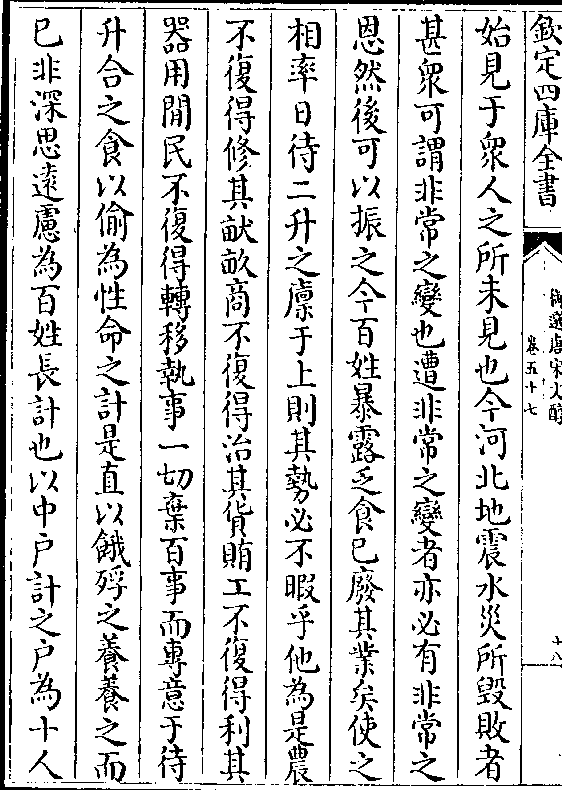 欽定四庫全書
御選唐宋文醇
卷五十七
十八
始見于衆人之所未見也今河北地震水災所毀敗者
甚衆可謂非常之變也遭非常之變者亦必有非常之
恩然後可以振之今百姓暴露乏食已廢其業矣使之
相率日待二升之廩于上則其勢必不暇乎他為是農
不復得修其畎畝商不復得治其貨賄工不復得利其
器用閒民不復得轉移執事一切棄百事而専意于待
升合之食以偷為性命之計是直以餓殍之養養之而
已非深思逺慮為百姓長計也以中户計之户為十人